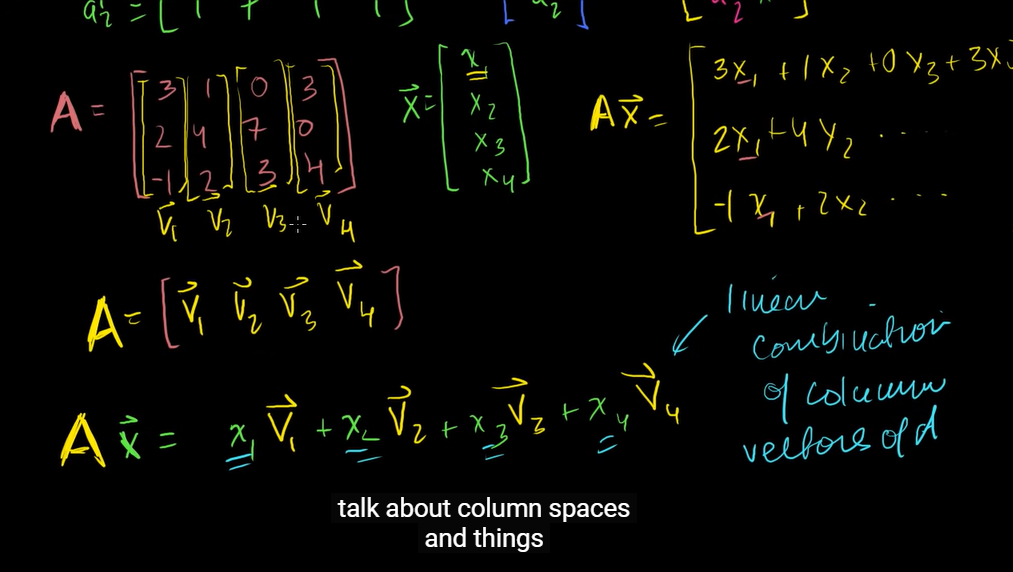 a₂ = [ ] [a₂] [a₂ ]
A = [3 1 0 3
2 4 7 0
-1 2 3 4]
v⃗₁ v⃗₂ v⃗₃ v⃗₄
x⃗ = [x₁
x₂
x₃
x₄]
Ax⃗ = [3x₁ + 1x₂ + 0x₃ + 3x
2x₁ + 4x₂ .....
-1x₁ + 2x₂ ...]
A = [v⃗₁ v⃗₂ v⃗₃ v⃗₄]
Ax⃗ = x₁v⃗₁ + x₂v⃗₂ + x₃v⃗₃ + x₄v⃗₄
linear
combination
of column
vectors of A
talk about column spaces
and things